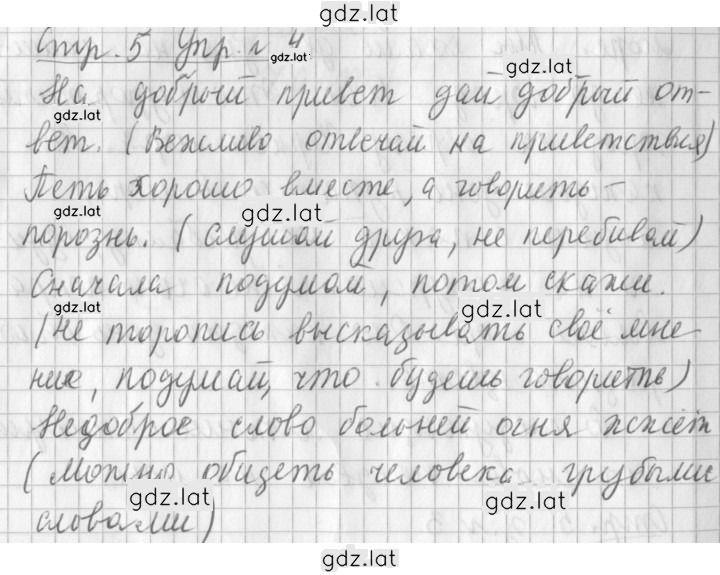 gdz.lat
Стр. 5 Упр. 4
gdz.lat
gdz.lat
На добрый привет дай добрый от-
gdz.lat
вет. (Вежливо отвечай на приветствия)
Петь хорошо вместе, а говорить -
gdz.lat
gdz.lat
порознь. (слушай друга, не перебивай)
Сначала подумай, потом скажи.
gdz.lat
gdz.lat
(не торопись высказывать своё мне-
ние, подумай, что будешь говорить)
Недоброе слово больней огня жжёт
(Можно обидеть человека грубыми
gdz.lat
gdz.lat
словами)
gdz.lat